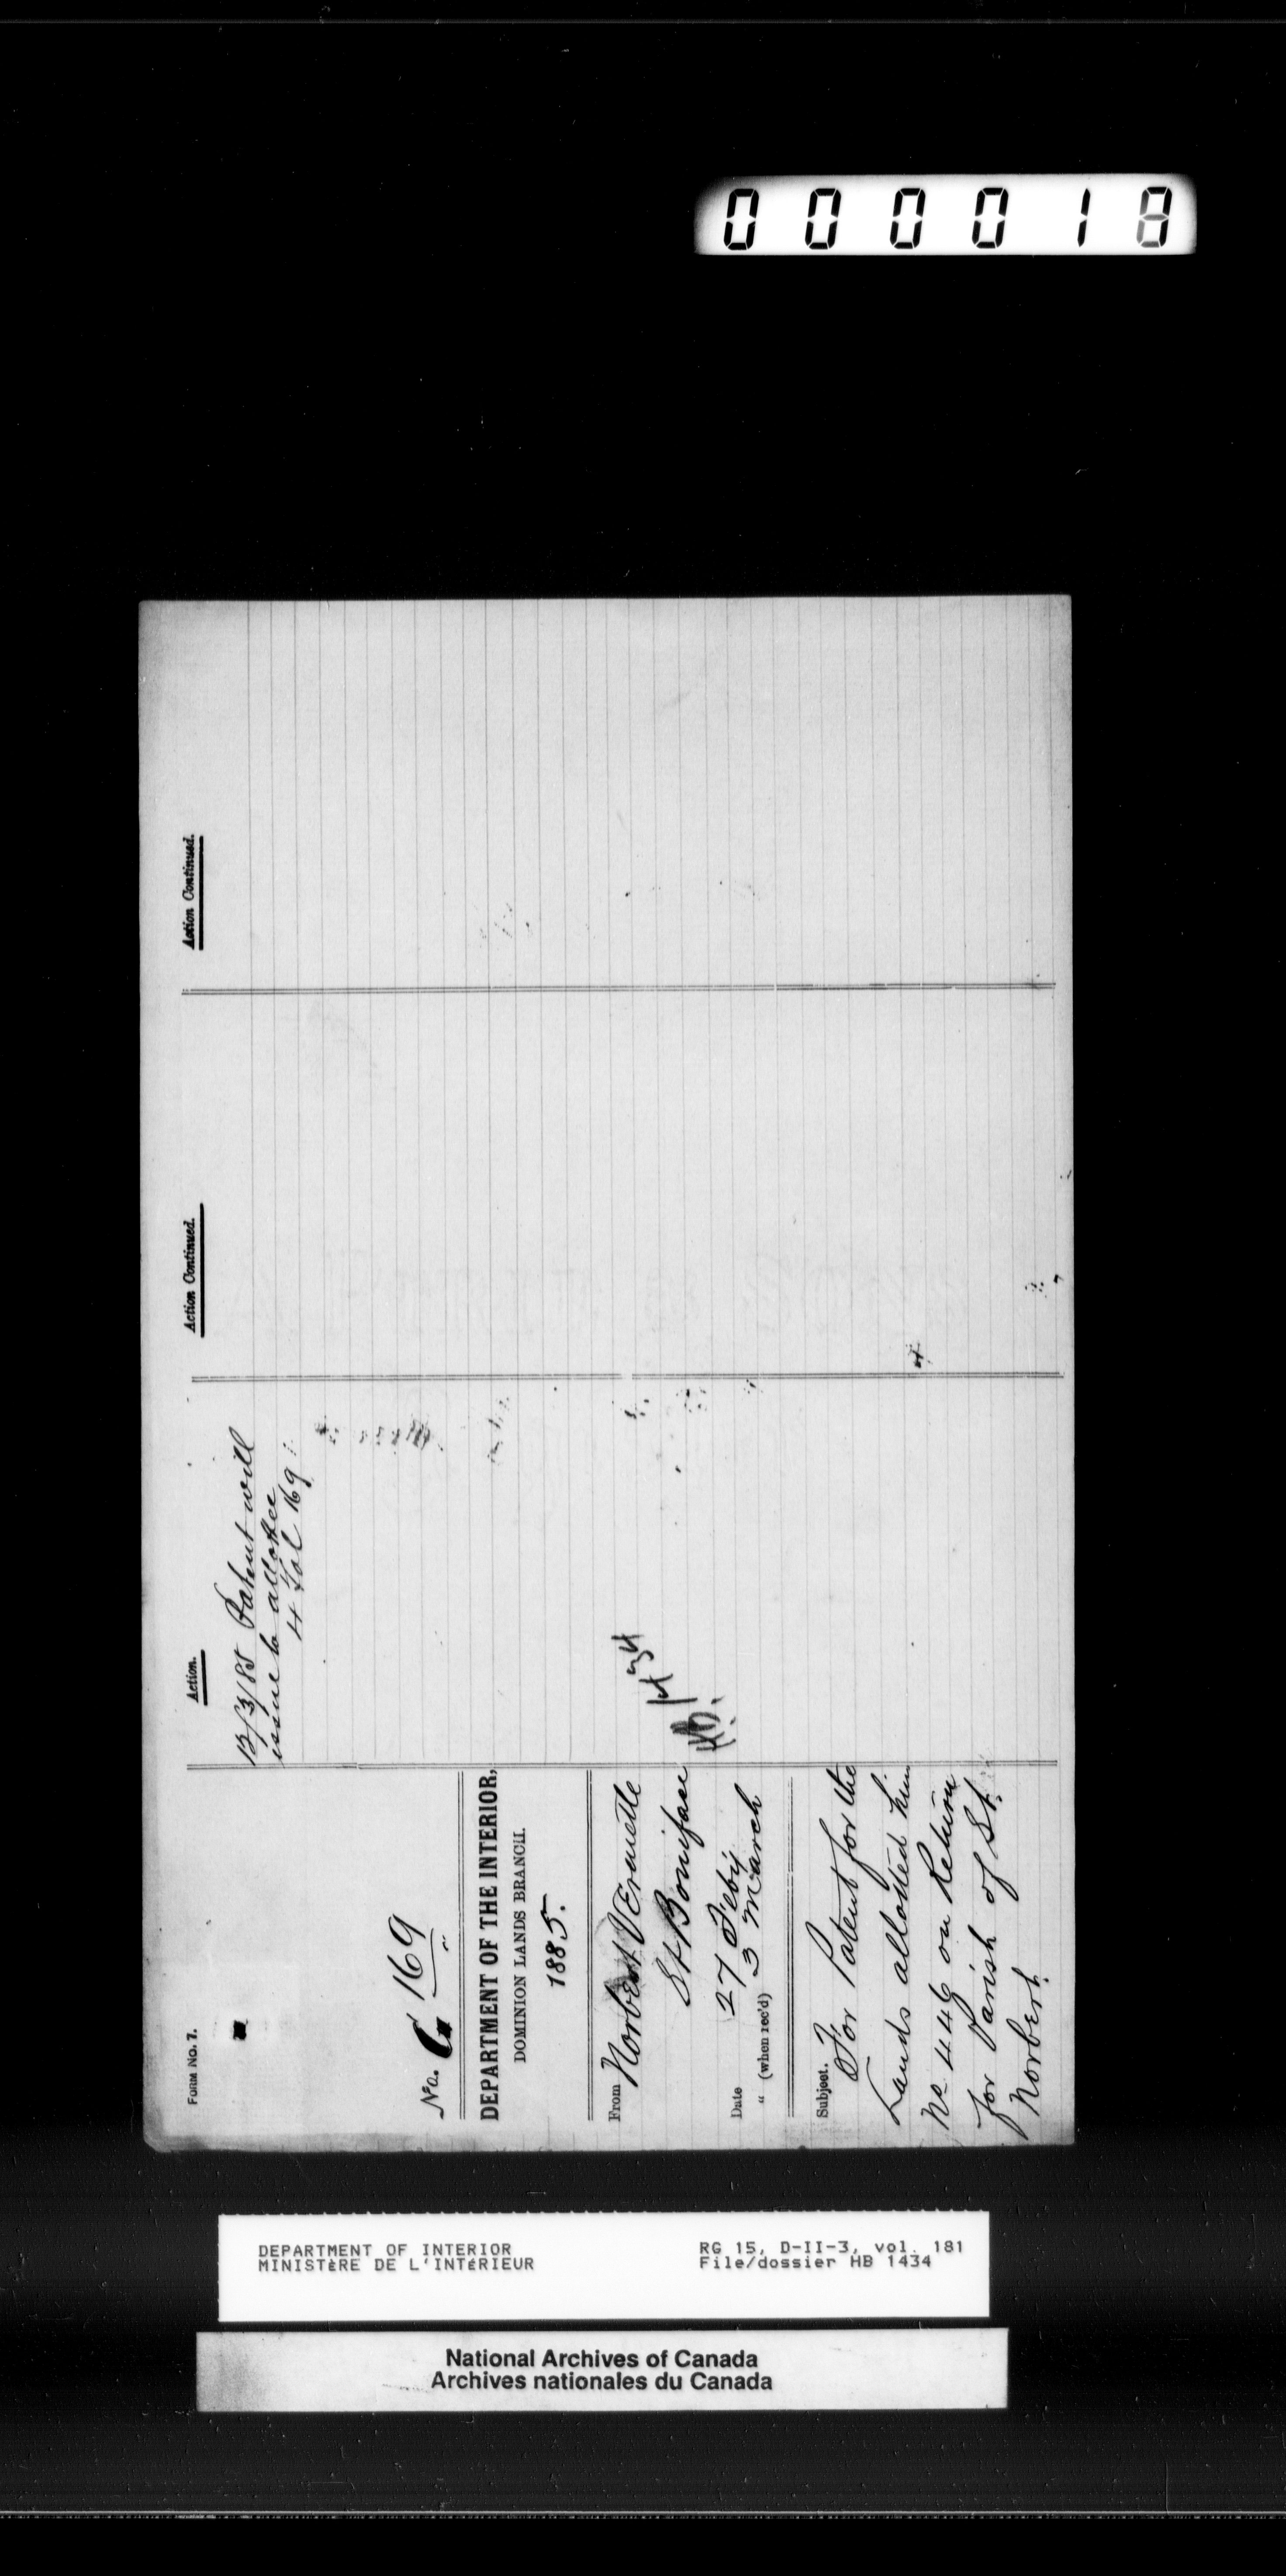 000018
FORM No. 7.
No. 169
DEPARTMENT OF THE INTERIOR,
DOMINION LANDS BRANCH.
1885.
From Norbert Vermette
St Boniface
Date 27 Feby
" (when rec'd) 3 March
Subject. For Patent for the
Lands allotted him
No 446 on Return
for Parish of St.
Norbert.
Action.
13/3/85 Patent will
issue to allottee
4 Fol 169
Action Continued.
Action Continued.
DEPARTMENT OF INTERIOR
MINISTÈRE DE L'INTÉRIEUR
RG 15, D-II-3, vol. 181
File/dossier HB 1434
National Archives of Canada
Archives nationales du Canada